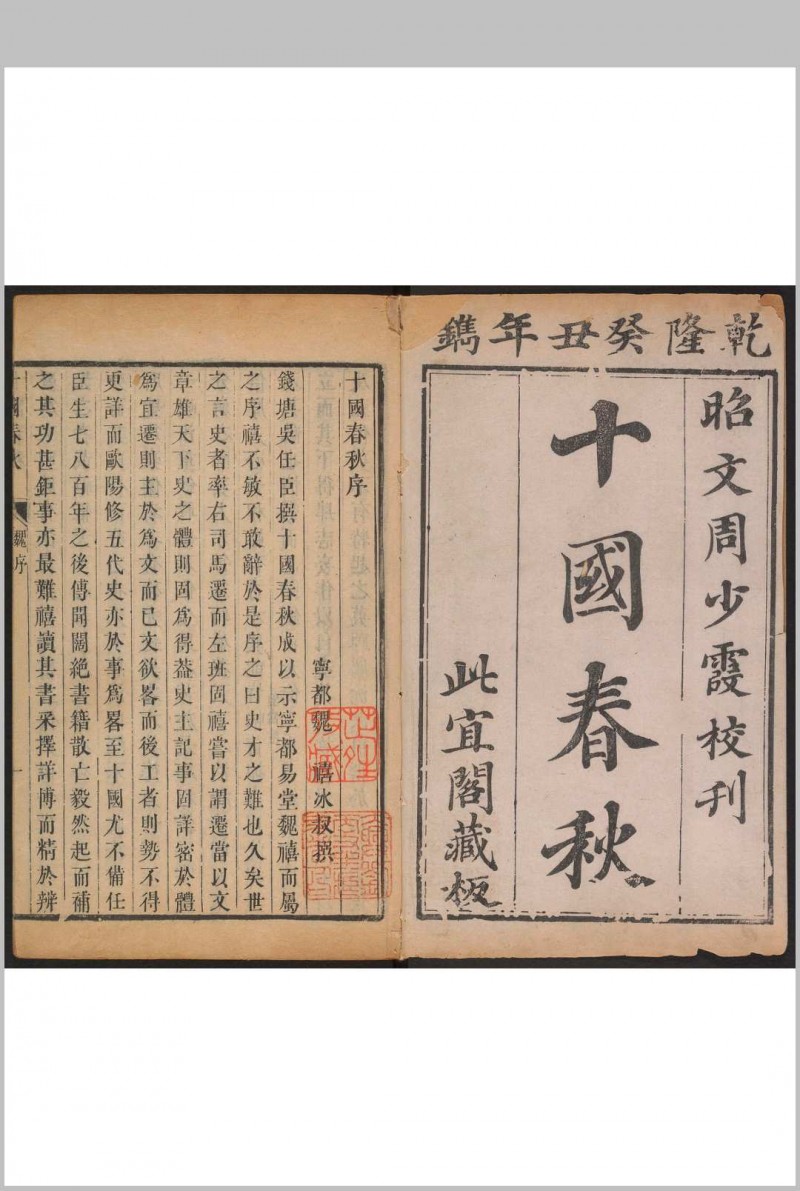 乾隆癸丑年鐫
昭文周少霞校刊
十國春秋
此宜閣藏板
十國春秋序
寧都魏禧冰叔撰
錢塘吳任臣撰十國春秋成以示寧都易堂魏禧而屬
之序禧不敏不敢辭於是序之曰史才之難也久矣世
之言史者率右司馬遷而左班固禧嘗以謂遷當以文
章雄天下史之體則固為得葢史主記事固詳密於體
為宜遷則主於為文而已文欲畧而後工者則勢不得
更詳而歐陽修五代史亦於事為畧至十國尤不備任
臣生七八百年之後傳聞闊絶書籍散亡毅然起而補
之其功甚鉅事亦最難禧讀其書釆擇詳博而精於辨
十國春秋
魏序
一